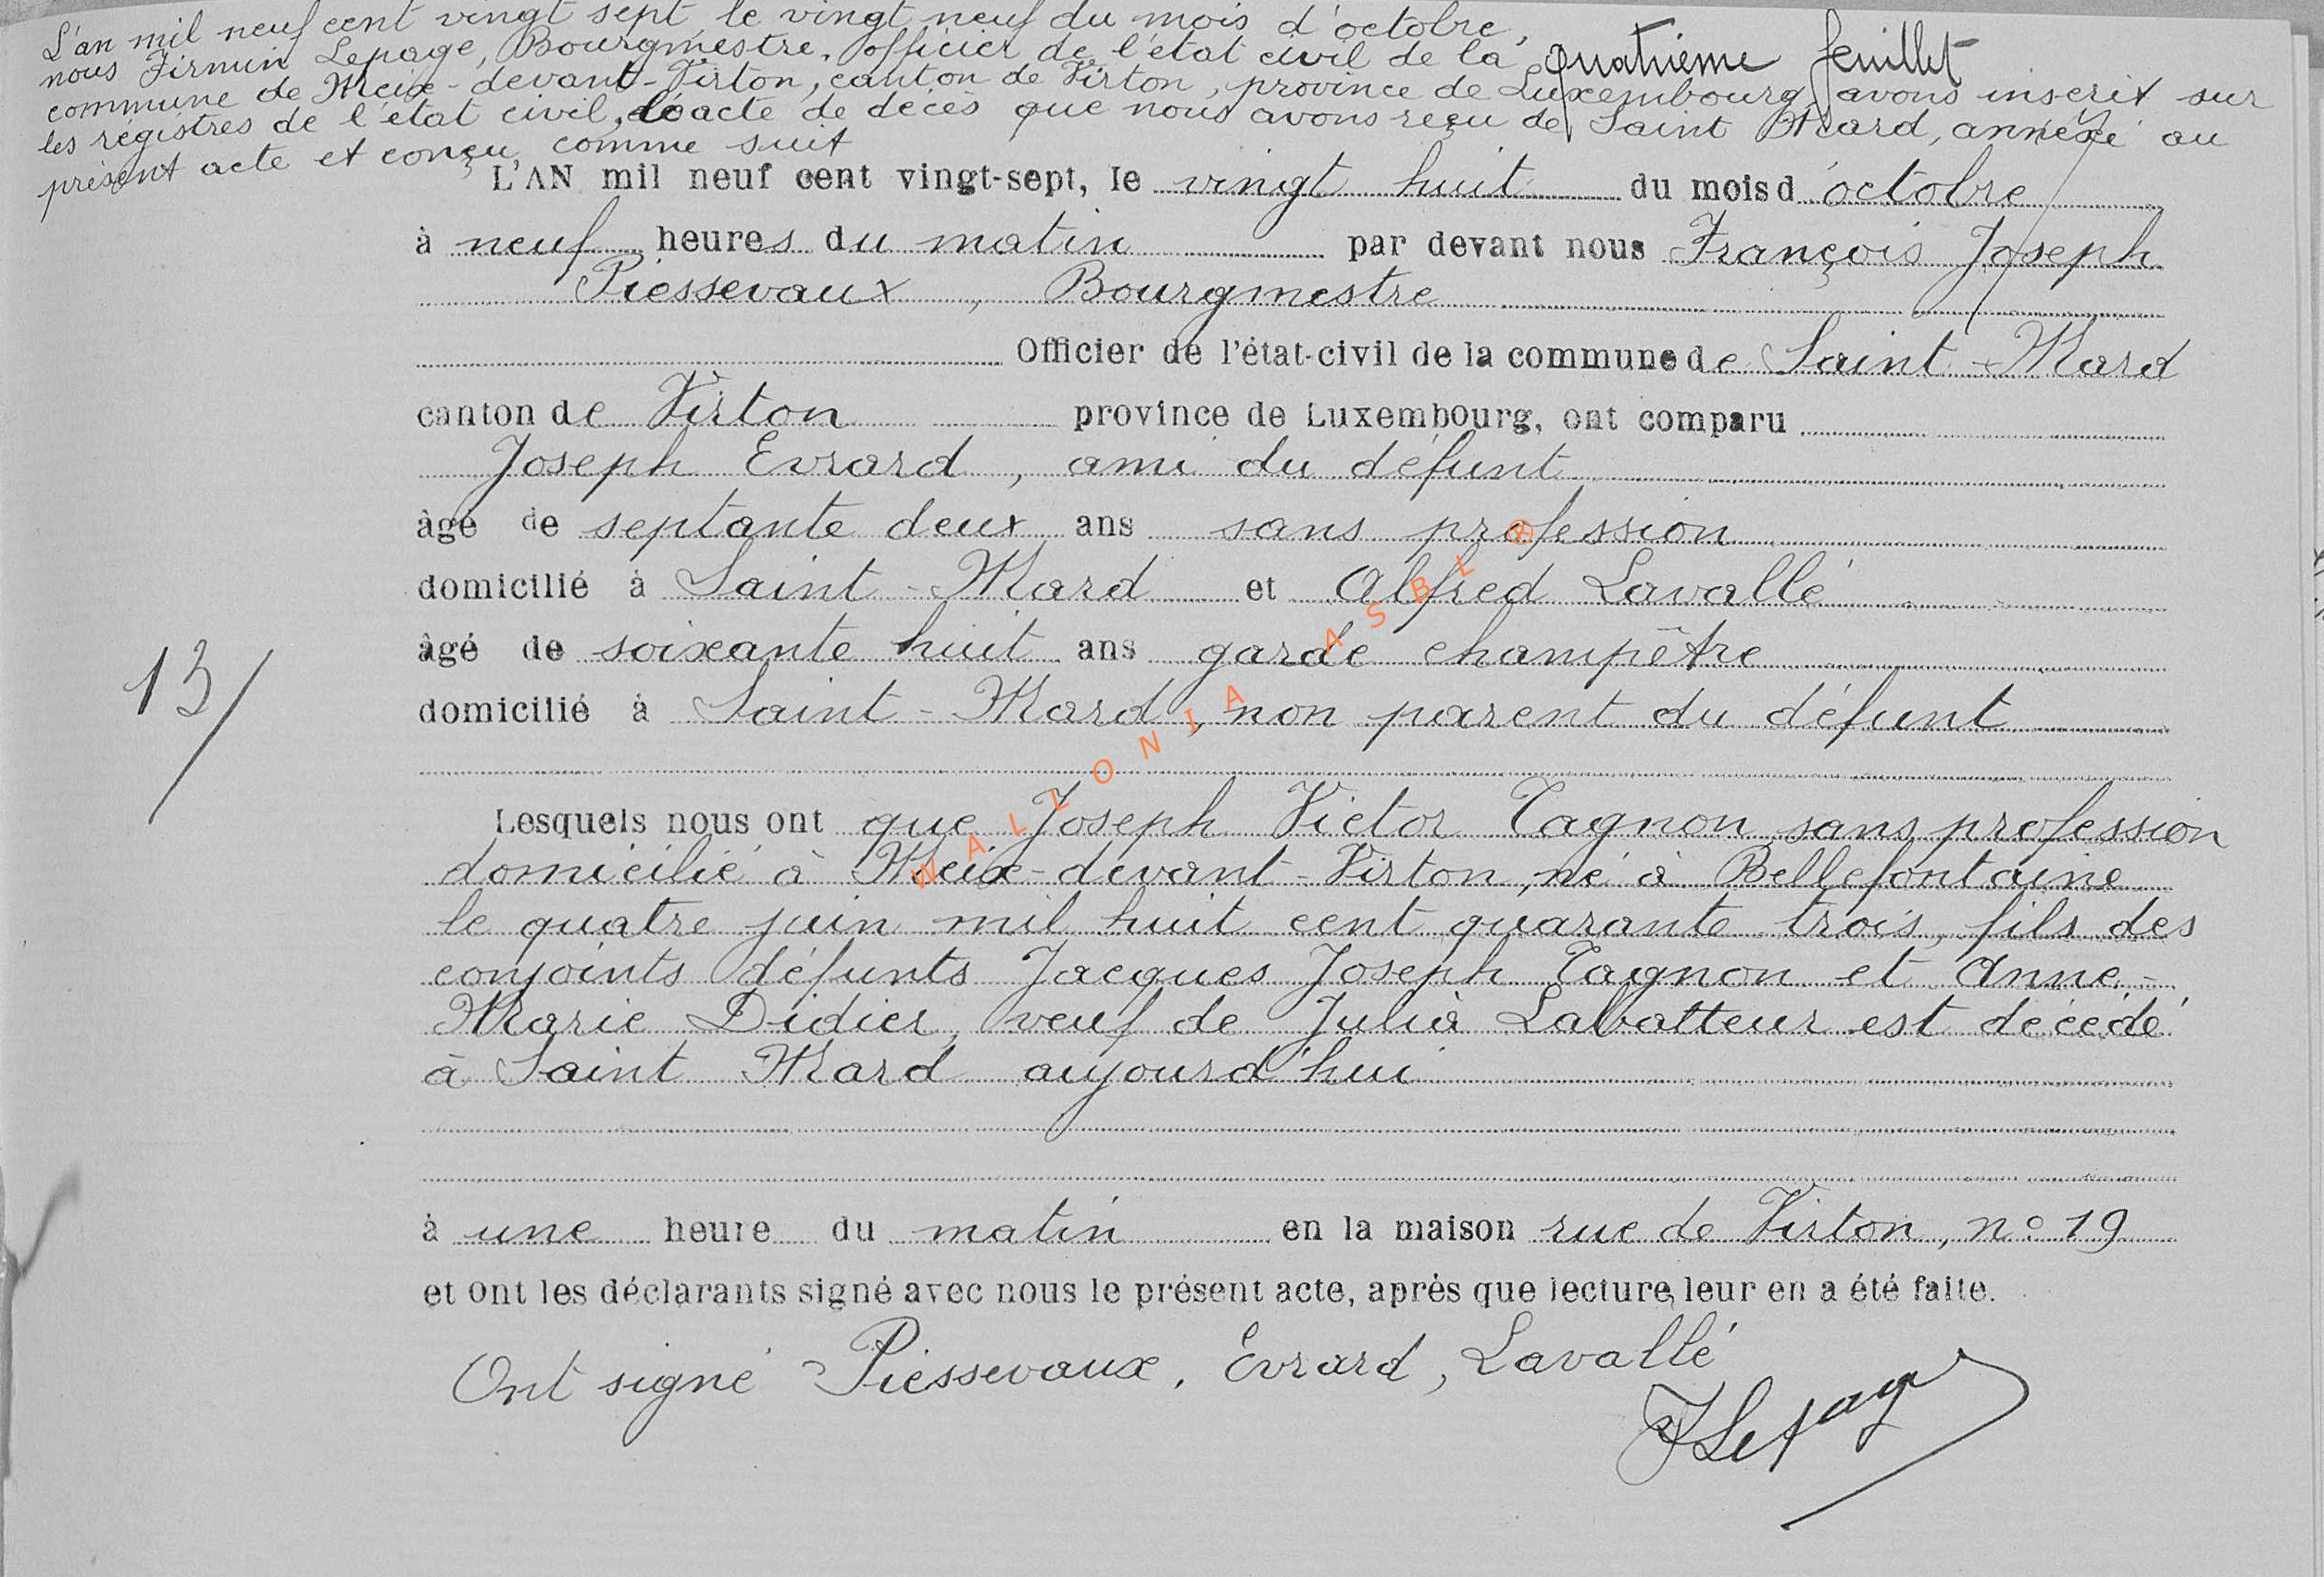 L'an mil neuf cent vingt sept le vingt neuf du mois d'octobre,
nous Firmin Lepage, Bourgmestre, officier de l'état civil de la
quatrième feuillet
commune de Meix-devant-Virton, canton de Virton, province de Luxembourg, avons inscrit sur
les régistres de l'état civil, acte de décès que nous avons reçu de Saint Mard, annexé au
présent acte et conçu comme suit
L'AN mil neuf cent vingt-sept, le vingt huit du mois d'octobre
à neuf heures du matin par devant nous François Joseph
Piessevaux, Bourgmestre
Officier de l'état-civil de la commune de Saint-Mard
canton de Virton province de Luxembourg, ont comparu
Joseph Evrard, ami du défunt
âgé de septante deux ans sans profession
domicilié à Saint-Mard et Alfred Lavallé
âgé de soixante huit ans garde champêtre
13/
domicilié à Saint-Mard, non parent du défunt
Lesquels nous ont que Joseph Victor Tagnon, sans profession
domicilié à Meix-devant-Virton, né à Bellefontaine
le quatre juin mil huit cent quarante trois, fils des
conjoints défunts Jacques Joseph Tagnon et Anne-
Marie Didier, veuf de Julia Labatteur est décédé
à Saint Mard aujourd'hui
à une heure du matin en la maison rue de Virton, n° 19
et ont les déclarants signé avec nous le présent acte, après que lecture leur en a été faite.
Ont signé Piessevaux, Evrard, Lavallé
FLepage
WALLONIA ASBL ®